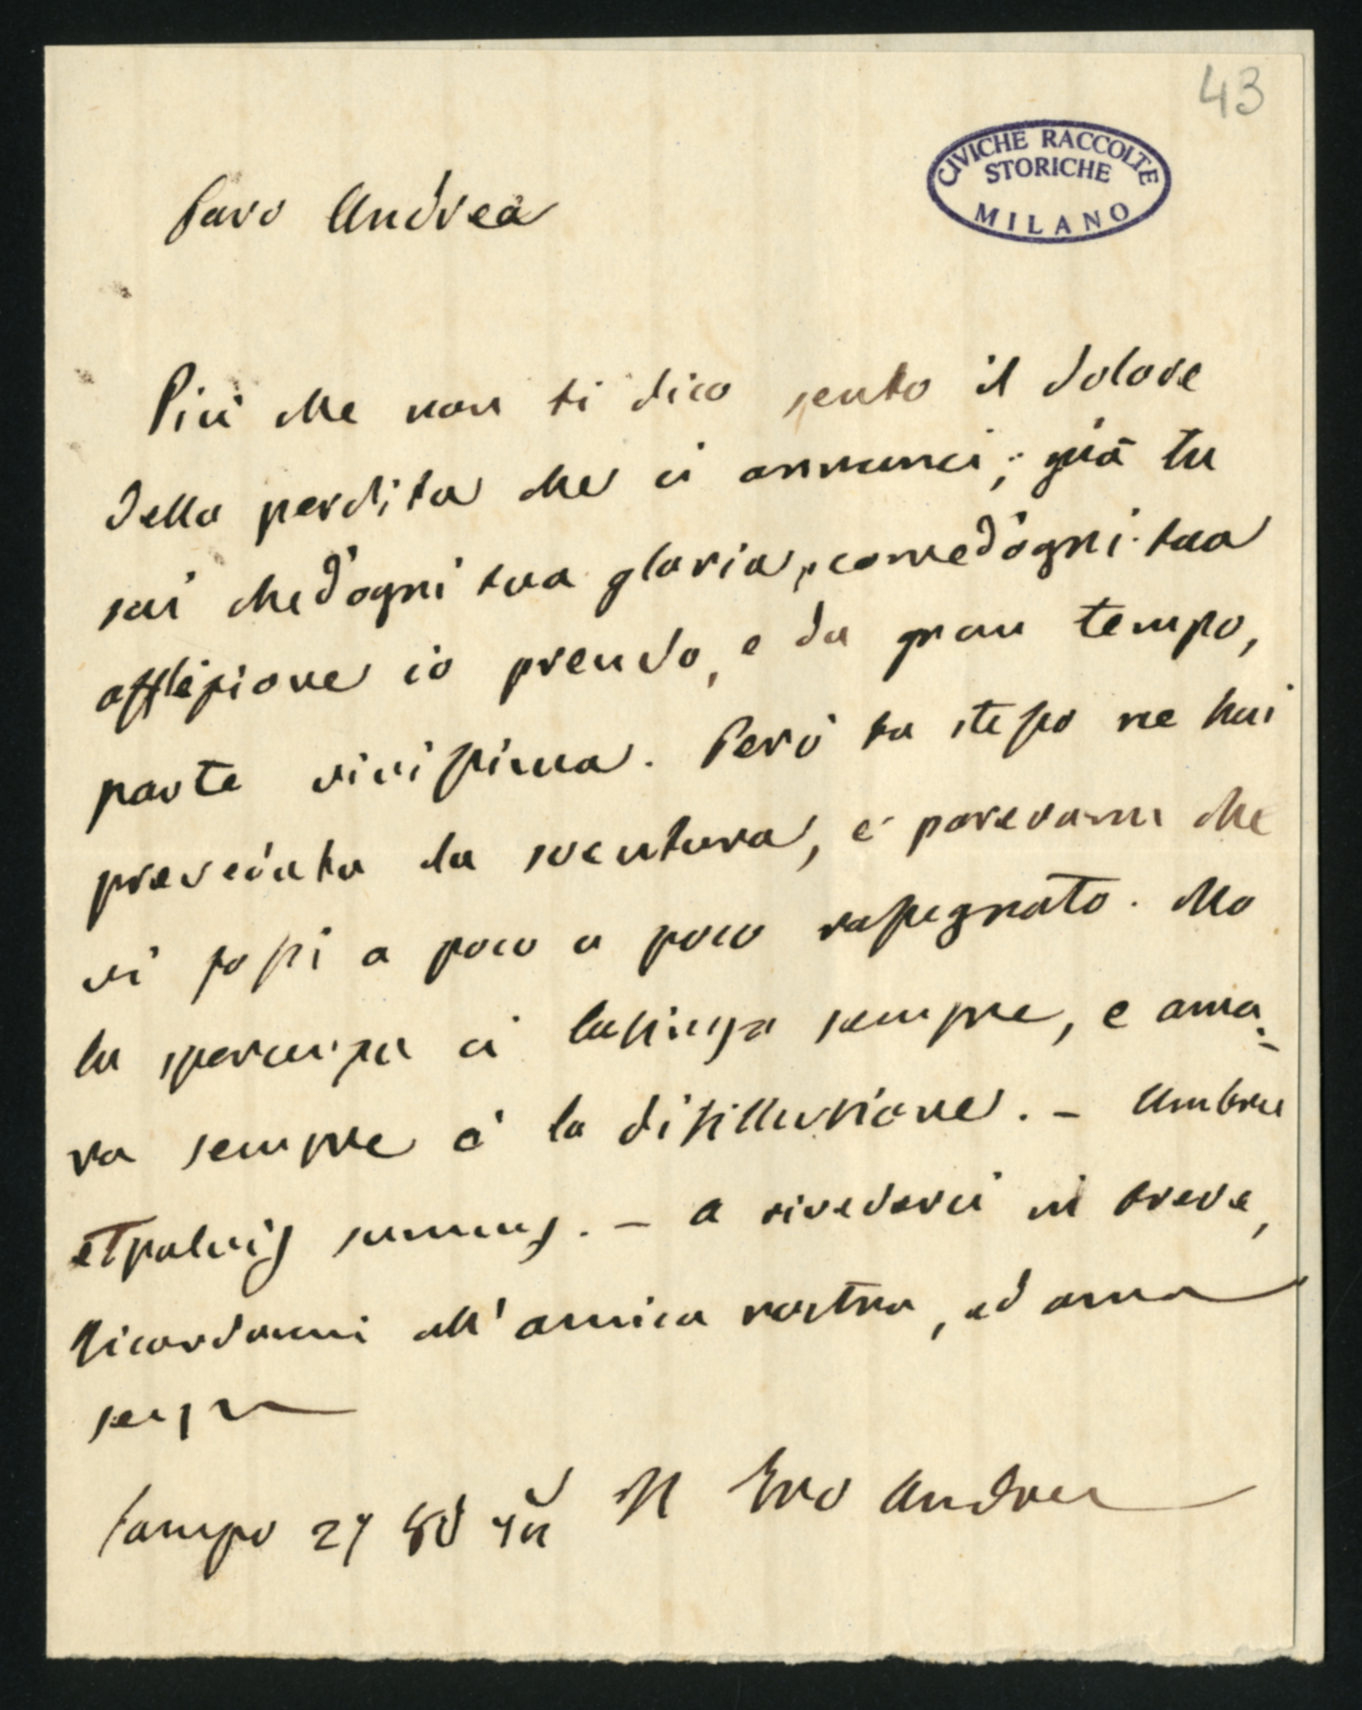 43
CIVICHE RACCOLTE
STORICHE
MILANO
Caro Andrea
Più che non ti dico sento il dolore
della perdita che ci annunci; già tu
sai che d'ogni tua gloria, come d'ogni tua
afflizione io prendo, e da gran tempo,
parte vivissima. Però tu stesso ne hai
preveduta la sventura, e parevami che
vi fossi a poco a poco rassegnato. Ma
la speranza ci lusinga sempre, e ama-
ra sempre è la disillusione. – Umbra
et pulvis sumus. – A rivederci in breve,
Ricordami all'amica nostra, ed ama
sempre
Il tuo Andrea
Campo 27